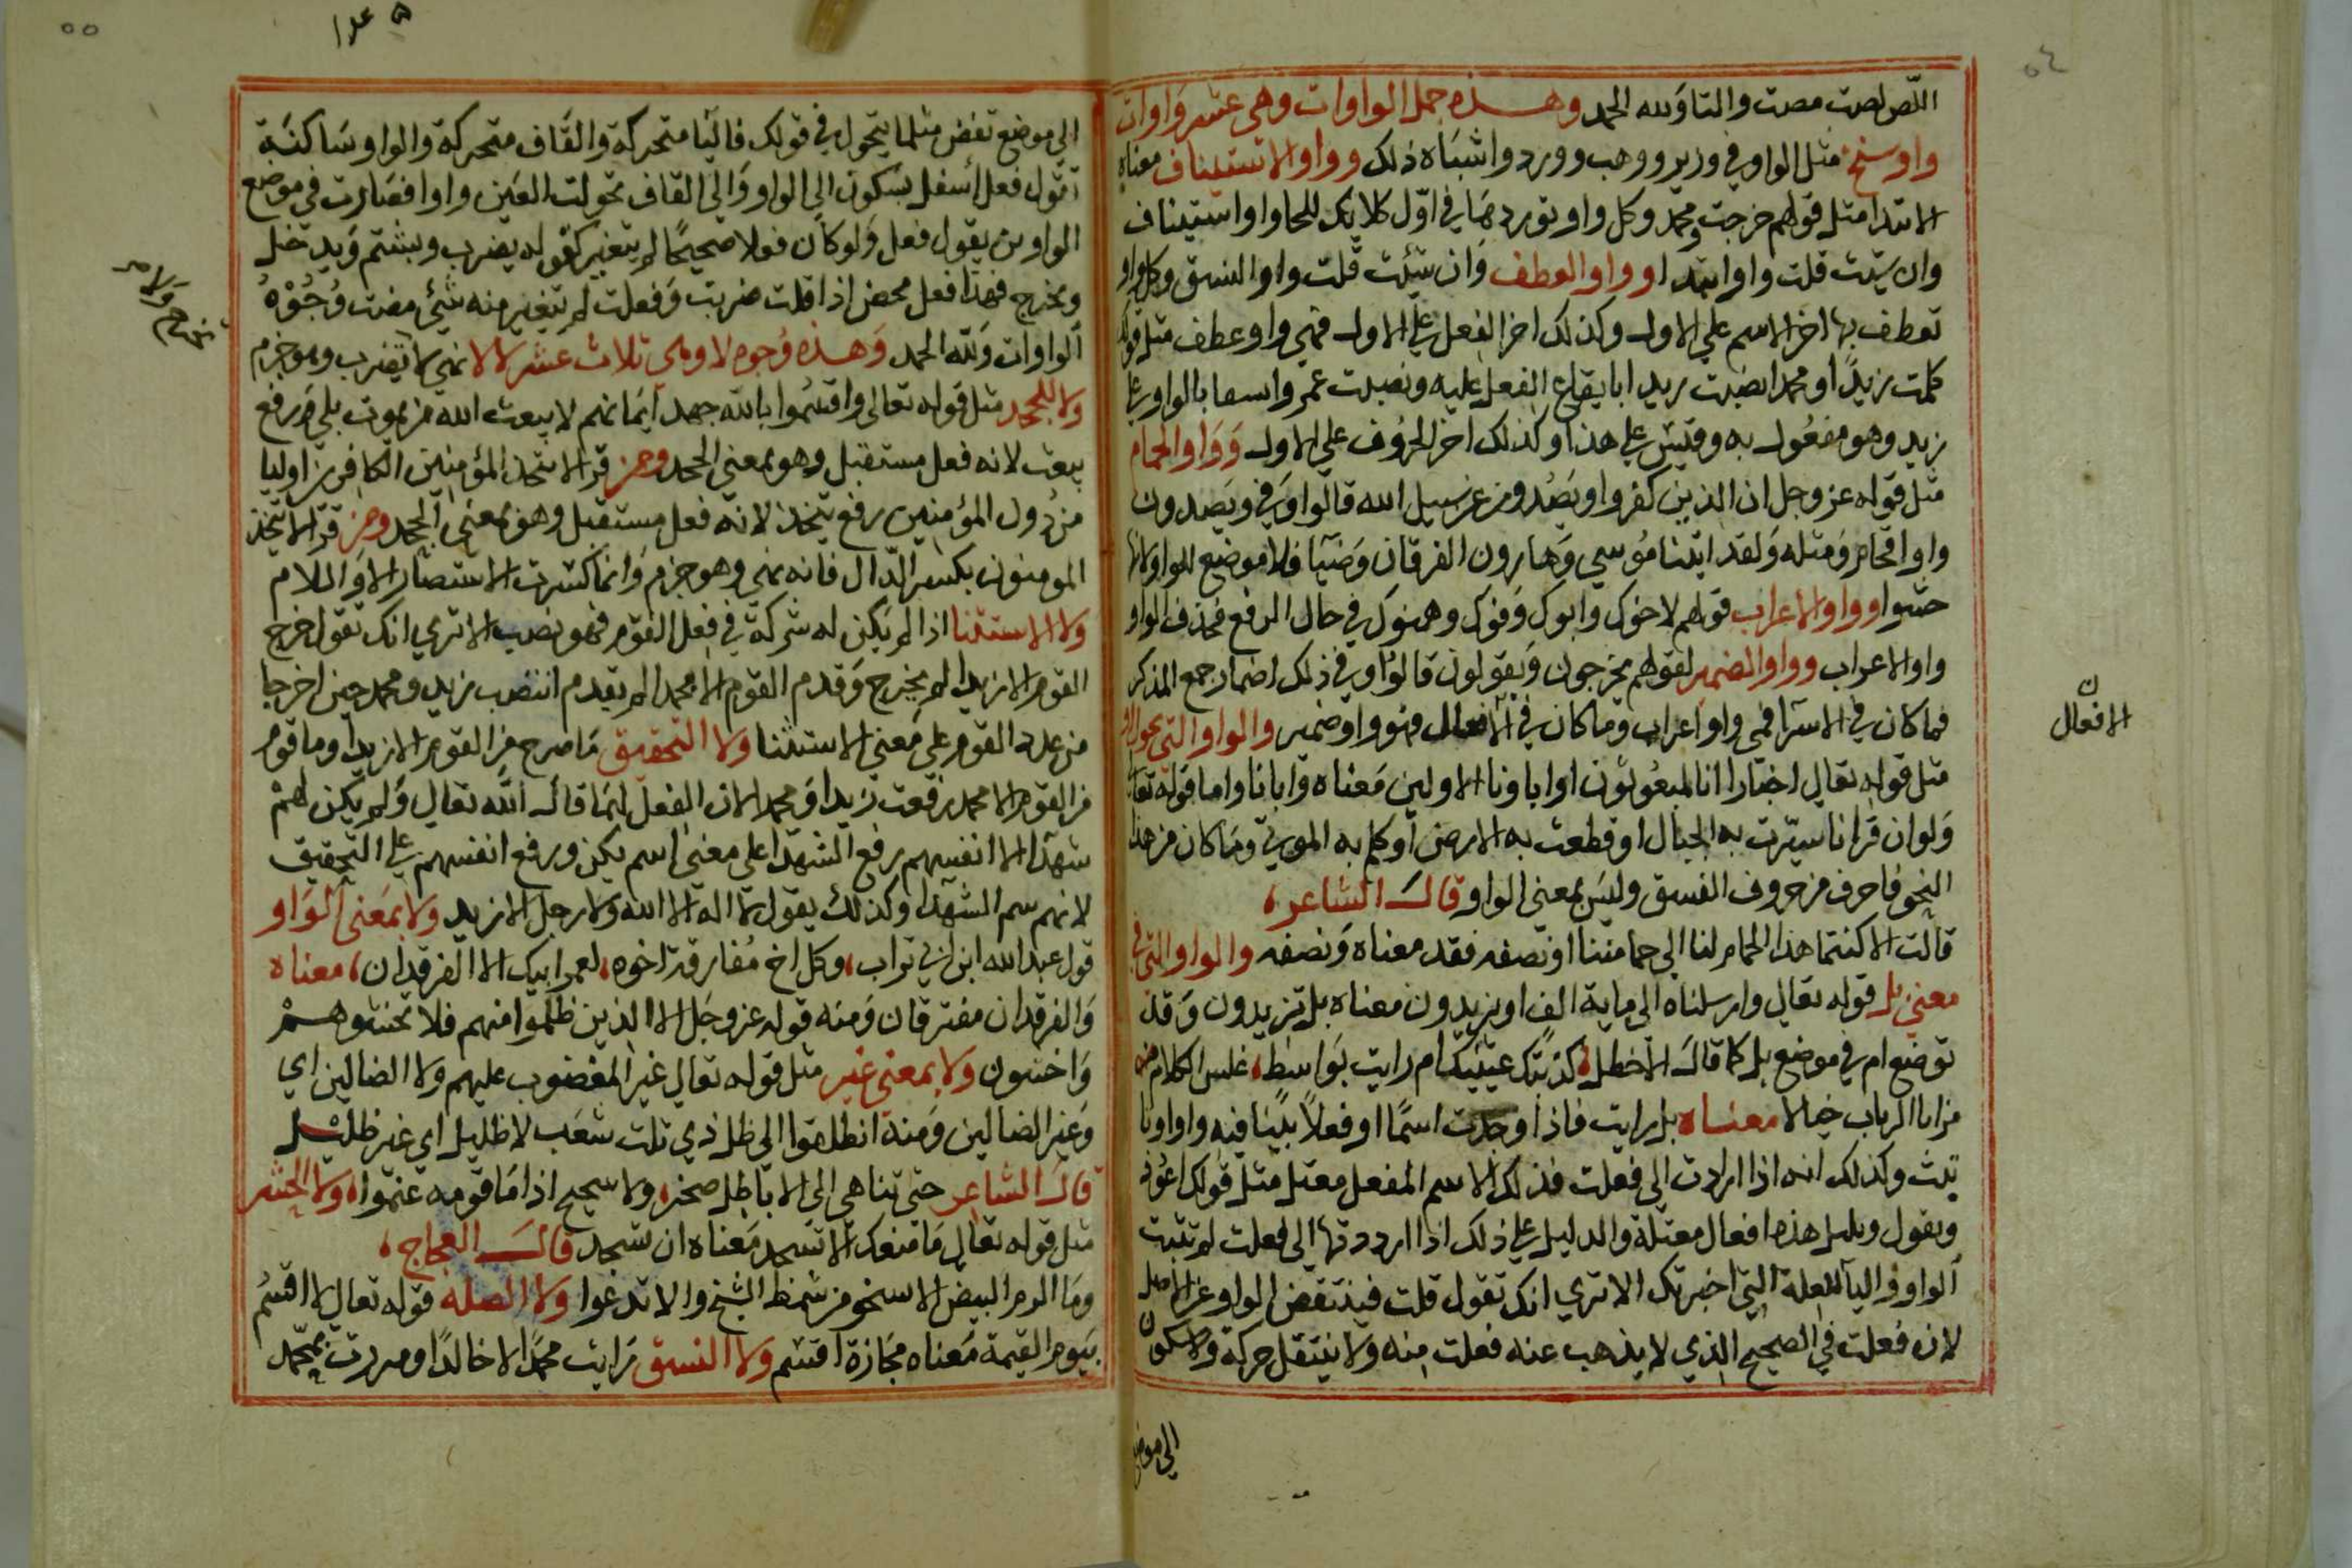 اللص لصت مصت والتاولله الحمد وهذه جمل الواوات وهي عشر واوات
واو سنخ مثل الواو في وزير ووهب وورد واشباه ذلك وواو الاستيناف معناه
الابتدا مثل قولهم خرجت ومحمد وكل واو توردها في اول كلامك للحا واو استيناف
وان شيت قلت واو ابتدا وواو العطف وان شيت قلت واو النسق وكل واو
تعطف بها اخر الاسم علي الاول وكذلك اخر الفعل علي الاول فهي واو عطف مثل قولك
كلمت زيدا ومحمدا نصبت زيدا بايقاع الفعل عليه ونصبت عمروا نسقا بالواو علي
زيد وهو مفعول به وقيس علي هذا وكذلك اخر الحروف علي الاول وواو الحام
مثل قوله عز وجل ان الذين كفروا ويصدون عن سبيل الله قالوا وفي ويصدون
واو اقحام ومثله ولقد اتينا موسي وهارون الفرقان وضيا فلا موضع للواو لانها
حشوا وواو الاعراب قولهم لاخوك وابوك وفوك وهنوك في حال الرفع فحذف الواو
واو الاعراب وواو الضمير لقولهم يخرجون ويقولون قالوا وفي ذلك اضمار جمع المذكر
فما كان في الاسما فهي واو اعراب وما كان في الافعال فهو واو ضمير والواو التي تحول او
مثل قوله تعالي اخبارا انا لمبعوثون اوا باونا الاولين معناه وابانا واما قوله تعالي
ولو ان قرانا سيرت به الجبال او قطعت به الارض او كلم به الموتي وما كان من هذا
النحو فاحرف من حروف النسق وليس بمعني الواو قال الشاعر
قالت الا كنتما هذا الحمام لنا الي حمامتنا او نصفه فقد معناه ونصفه والواو التي في
معني بل قوله تعالي وارسلناه الي ماية الف او يزيدون معناه بل تزيدون وقد
توضع ام في موضع بل كما قال الاخطل كذبتك عينيك ام رايت بواسط غلس الكلام من
من ابا الرباب خيالا معناه بل رايت فاذا وجدت اسما او فعلا بينا فيه واوا ويا
تبث وكذلك انه اذا اردت الي فعلت فذلك الاسم المفعل معتل مثل قولك اعوذ
ويقول ويليل هذه افعال معتلة والدليل علي ذلك اذا ارددتها الي فعلت لم تثبت
الواو واليا للعلة التي اخبرتك الا تري انك تقول قلت فينتقض الواو عن الاصل
لان فعلت في الصحيح الذي لا يذهب عنه فعلت منه ولا ينتقل حركة ولا سكون
الي موضع
ن
الافعال
الي موضع تفض مثلما يتحول في قولك فاليا متحركة والقاف متحركة والواو ساكنة
تقول فعل اسفل بسكون الي الواو والي القاف تحولت العين واوا فصارت في موضع
الواو من يقول فعل ولو كان فعلا صحيحا لم يتغير كقوله يضرب ويشتم ويدخل
ويخرج فهذا فعل محض اذا قلت ضربت وفعلت لم يتغير منه شيئ مضت وجوه
الواوات ولله الحمد وهذه وجوه لا وهي ثلاث عشر لا لا نهي لا تضرب وهو جزم
ولا للجحد مثل قوله تعالي واقسموا بالله جهد ايمانهم لا يبعث الله من يموت بلي رفع
يبعث لانه فعل مستقبل وهو بمعني الجحد ومن قرا لا يتخذ المؤمنين الكافرين اوليا
من دون المؤمنين رفع يتخذ لانه فعل مستقبل وهو بمعني الجحد ومن قرا لا يتخذ
المومنون بكسر الدال فانه نهي وهو جزم وانما كسرت الاستصار الا واللام
ولا الاستثنا اذا لم يكن له شركة في فعل القوم فهو نصب الا تري انك تقول خرج
القوم الا زيدا لم يخرج وقدم القوم الا محمدا لم يقدم انتصب زيد ومحمد حين اخرجا
من عدد القوم علي معني الاستثنا ولا التحقيق ما صرح من القوم الا زيدا وما قوم
من القوم الا محمد رفعت زيدا ومحمد لان الفعل لهما قال الله تعالي ولم يكن لهم
شهدا الا انفسهم رفع الشهدا علي معني اسم يكن ورفع انفسهم علي التحقيق
لانهم سم الشهدا وكذلك يقول لا اله الا الله ولا رجل الا زيد ولا بمعني الواو
قول عبد الله ابن ابي تراب وكل اخ مفارقة اخوه لعمر ابيك الا الفرقدان معناه
والفرقدان مفترقان ومنه قوله عز وجل الا الذين ظلموا منهم فلا تخشوهم
واخشون ولا بمعني غير مثل قوله تعالي غير المغضوب عليهم ولا الضالين اي
وغير الضالين ومنه انطلقوا الي ظل ذي ثلث شعب لا ظليل اي غير ظليل
قال الشاعر حتي تناهي الي لا باطل صخر ولا سحيح اذا ما قومه عنموا ولا الحشر
مثل قوله تعالي ما منعك الا تسجد معناه ان تسجد قال العجاج
وما الوم البيض الا سخو من شمط الشيخ والا تدعوا ولا الصله قوله تعالي لا اقسم
بيوم القيمة معناه مجازة اقسم ولا النسق رايت محمدا لا خالدا ومررت بمحمد